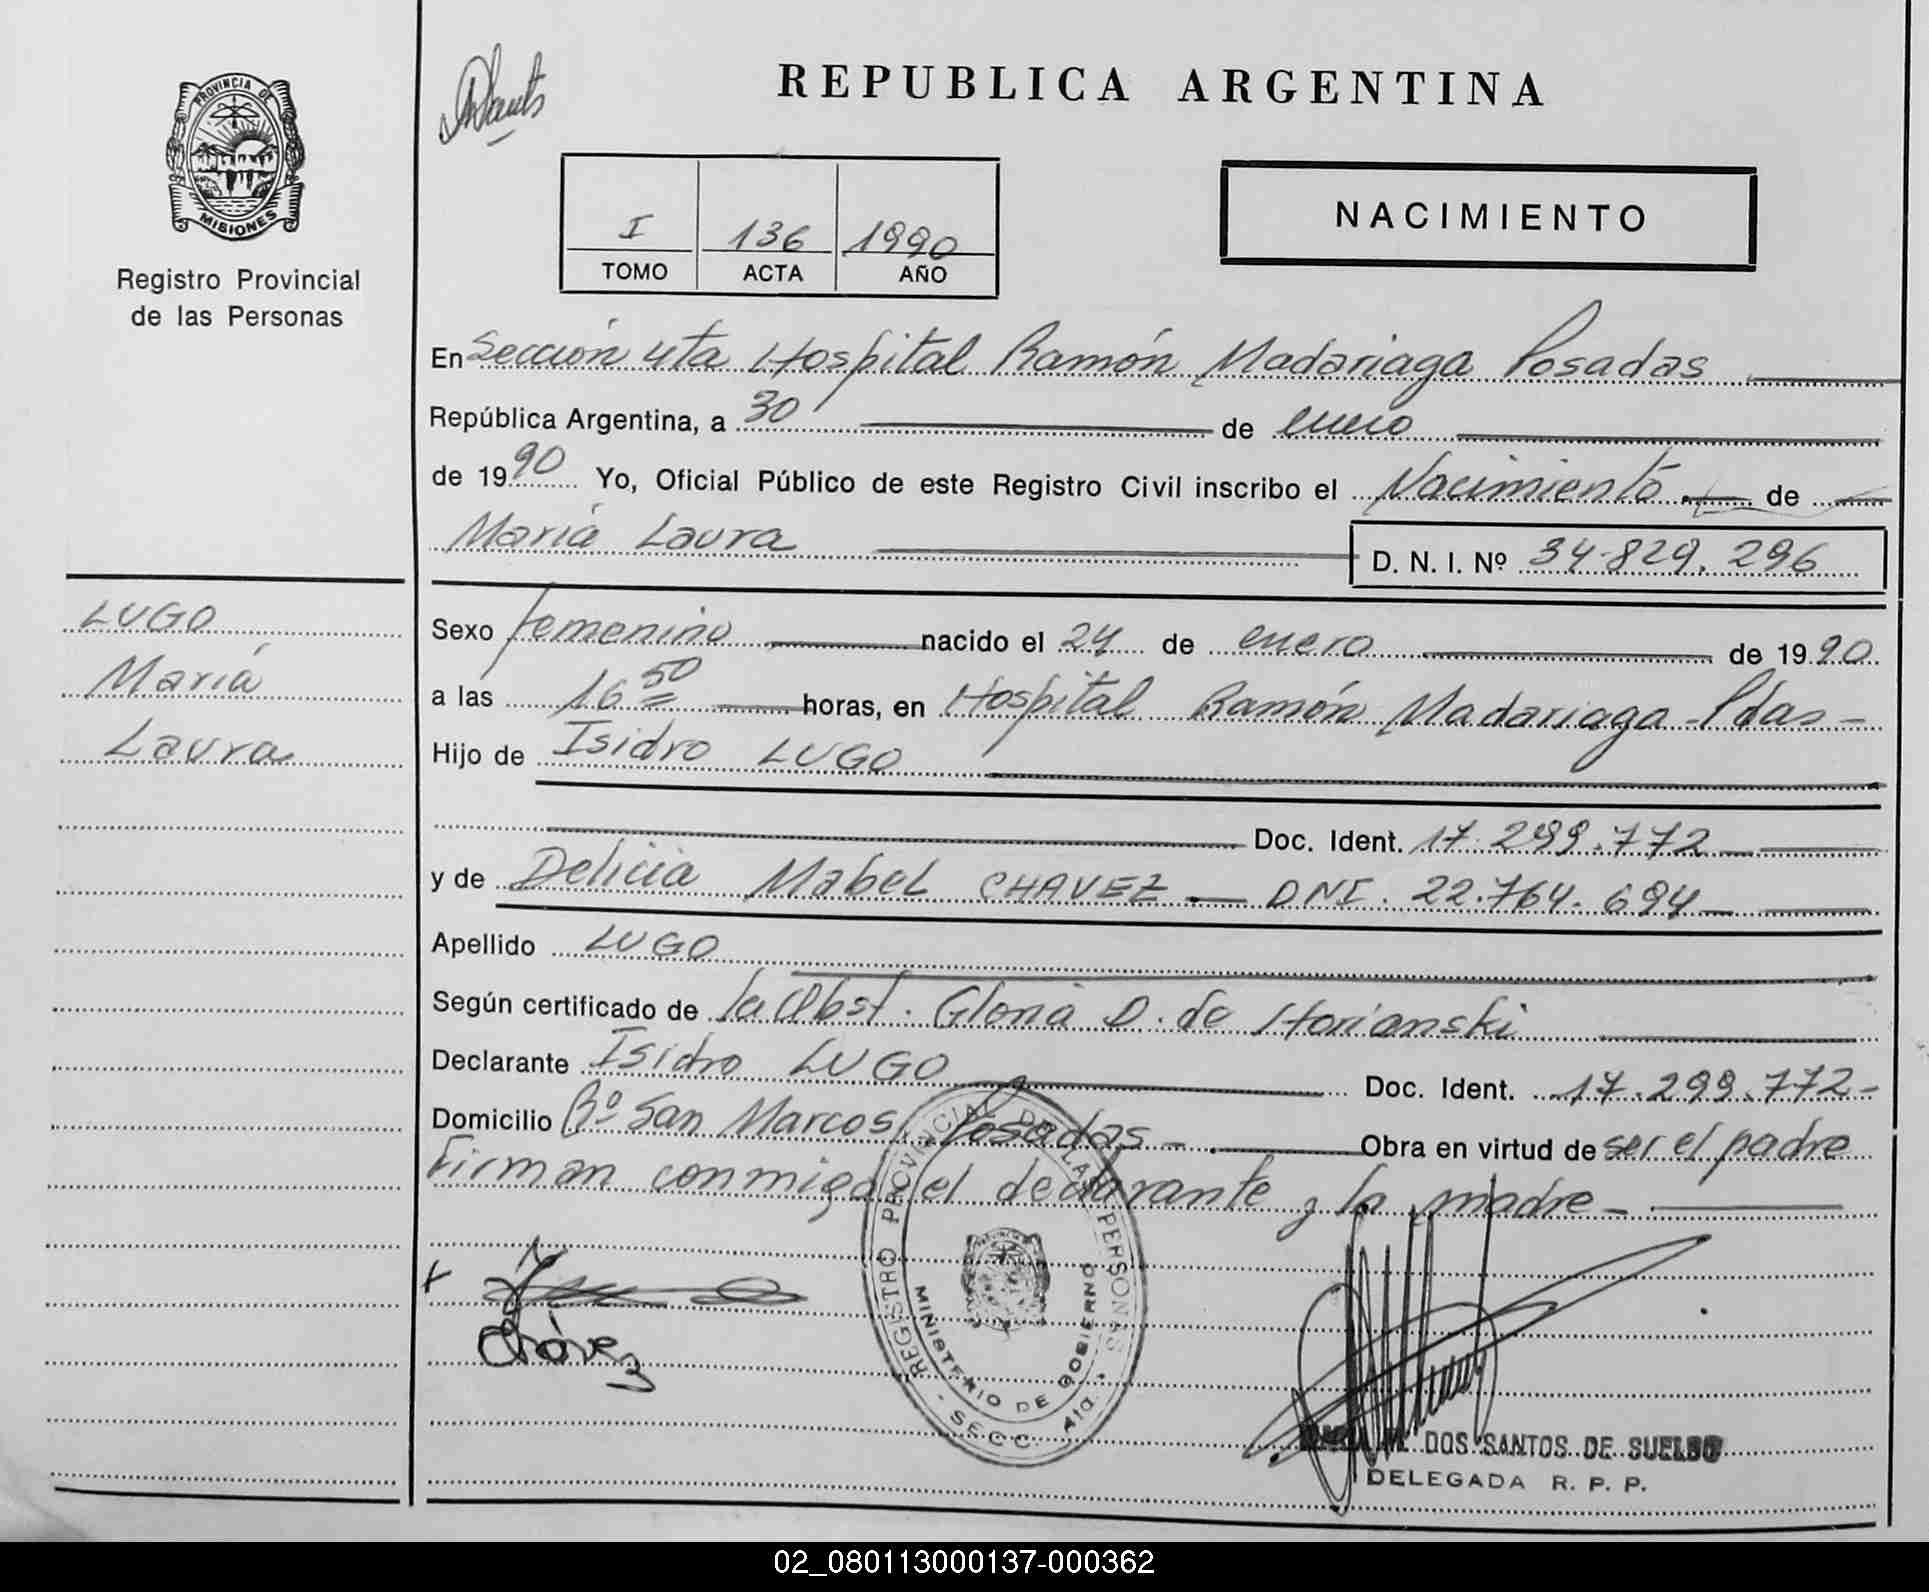 PROVINCIA DE
MISIONES
Registro Provincial
de las Personas
REPUBLICA ARGENTINA
NACIMIENTO
I 136 1990
TOMO ACTA AÑO
En Sección 4ta Hospital Ramón Madariaga Posadas
República Argentina, a 30 de enero
de 1990 Yo, Oficial Público de este Registro Civil inscribo el Nacimiento de
María Laura D. N. I. Nº 34.829.296
LUGO
María
Laura
Sexo femenino nacido el 24 de enero de 1990
a las 16 50 horas, en Hospital Ramón Madariaga - Pdas -
Hijo de Isidro LUGO
Doc. Ident. 17.299.772
y de Delicia Mabel CHAVEZ — DNI. 22.764.694
Apellido LUGO
Según certificado de la Obst. Gloria D. de Horianski
Declarante Isidro LUGO Doc. Ident. 17.299.772-
Domicilio Bº San Marcos Posadas - Obra en virtud de ser el padre
Firman conmigo el declarante y la madre -
Chávez
REGISTRO PROVINCIAL DE LAS PERSONAS
MINISTERIO DE GOBIERNO
- SECC. 4ta. -
DOS SANTOS DE SUELDO
DELEGADA R. P. P.
02_080113000137-000362